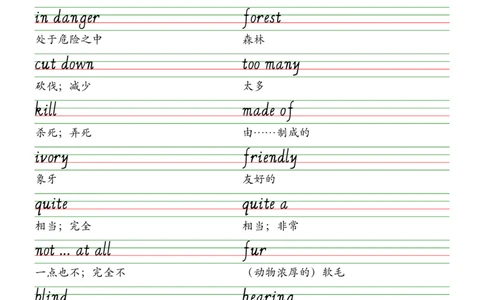 in danger forest
处于危险之中 森林
cut down too many
砍伐；减少 太多
kill made of
杀死；弄死 由……制成的
ivory friendly
象牙 友好的
quite quite a
相当；完全 相当；非常
not ... at all fur
一点也不；完全不 （动物浓厚的）软毛
blind hearing